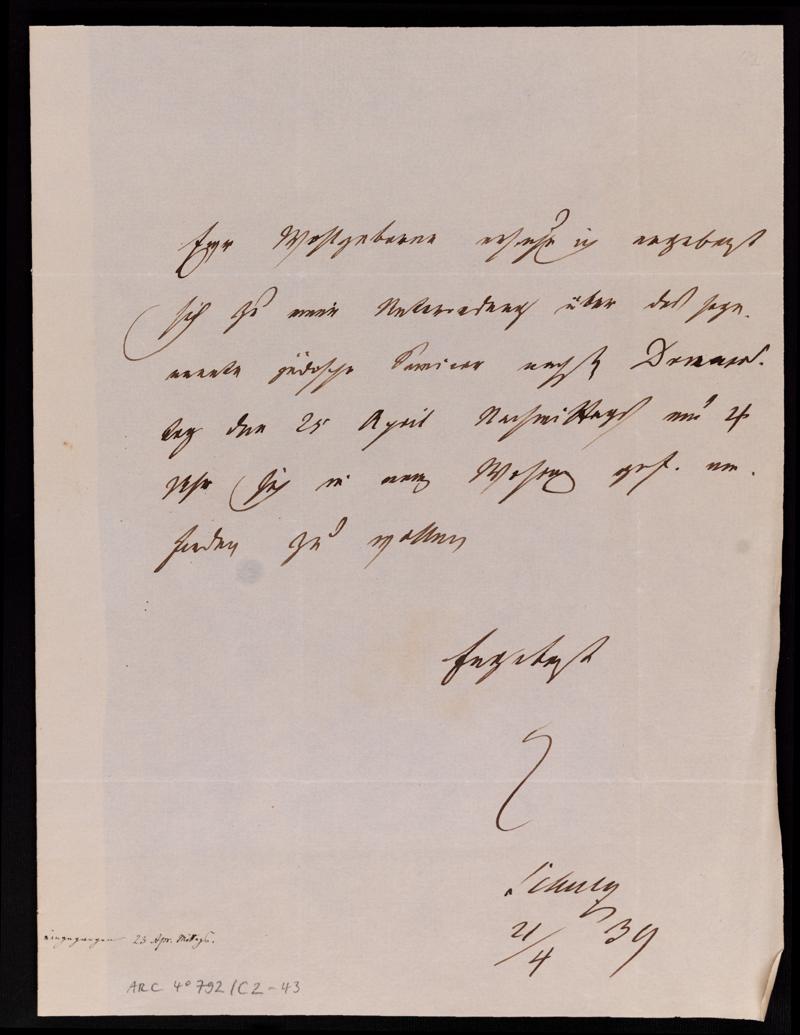 Ewr Wohlgeboren ersuche ich ergebenst
sich zu einer Unterredung über das soge-
nannte jüdische Seminar nächsten Donners-
tag den 25 April Nachmittags um 4
Uhr sich in meiner Wohnung gef. ein-
finden zu wollen
Ergebenst
Schulz
21/4 39
eingegangen 23 Apr. Mittags.
ARC 4° 792/C2-43